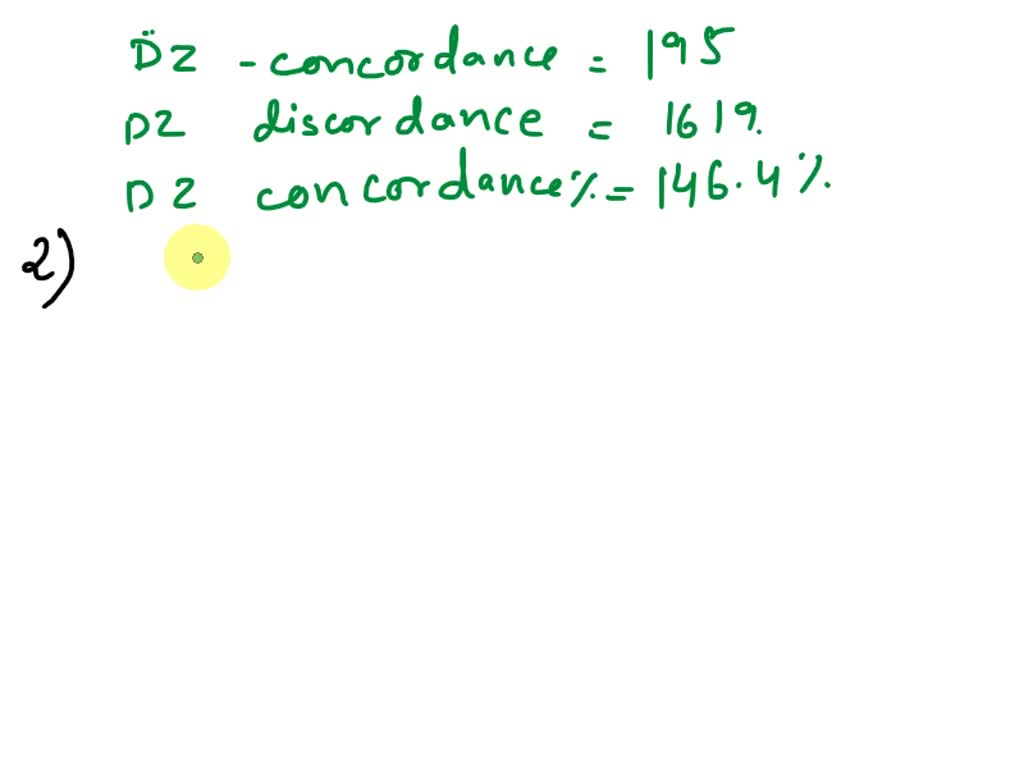 DZ - concordance = 195
DZ discordance = 1619.
DZ concordance % = 146.4%.
2)